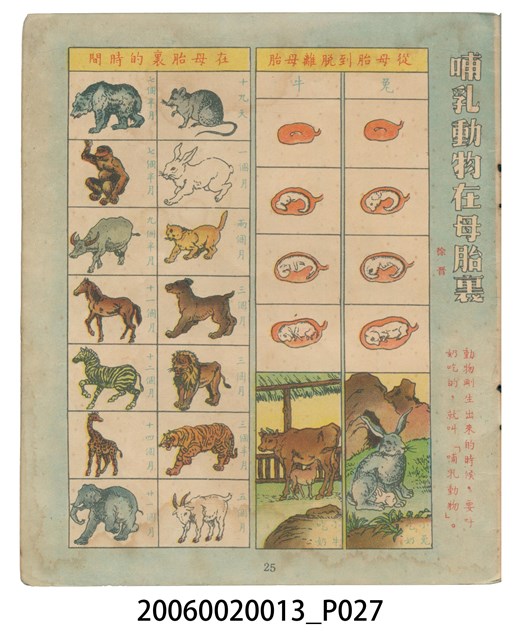 哺乳動物在母胎裏
徐晋
動物剛生出來的時候，要吃
奶吃的，就叫「哺乳動物」。
從母胎到脫離母胎
兔
牛
小兔
吃奶
小牛
吃奶
在母胎裏的時間
十九天
一個月
兩個月
三個月
三個月
三個半月
五個月
七個半月
七個半月
九個半月
十一個月
十二個月
十四個月
廿二個月
25
20060020013_P027